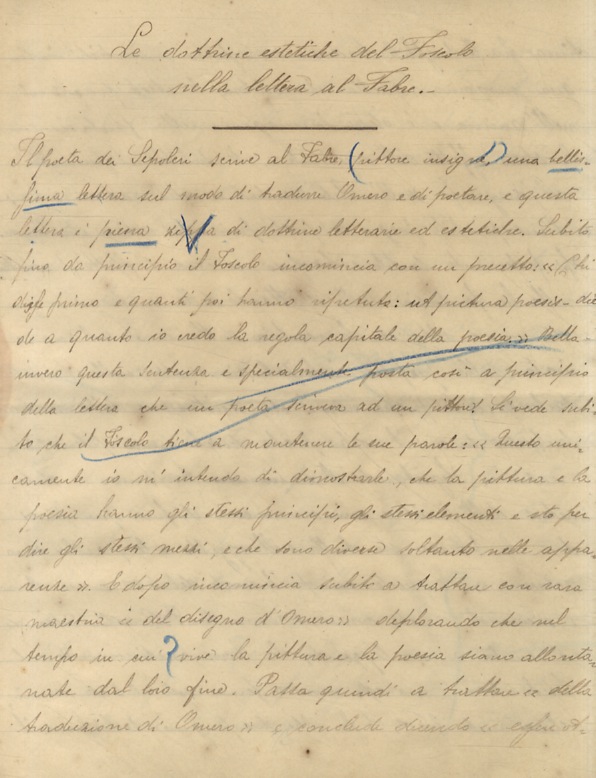 Le dottrine estetiche del Foscolo
nella lettera al Fabre.
Il poeta dei Sepolcri scrive al Fabre, (pittore insigne,) una bellis-
sima lettera sul modo di tradurre Omero e di poetare, e questa
lettera è piena di dottrine letterarie ed estetiche. Subito
fino da principio il Foscolo incomincia con un precetto: « Chi
disse primo e quanti poi hanno ripetuto: ut pictura poesis - die-
de a quanto io credo la regola capitale della poesia. » Bella
invero questa sentenza e specialmente posta così a principio
della lettera che un poeta scriveva ad un pittore! Si vede subi-
to che il Foscolo tiene a mantenere le sue parole: « Questo uni-
camente io m' intendo di dimostrarle, che la pittura e la
poesia hanno gli stessi principi, gli stessi elementi e sto per
dire gli stessi mezzi, e che sono diverse soltanto nelle appa-
renze ». E dopo incomincia subito a trattare con rara
maestria « del disegno d' Omero » deplorando che nel
tempo in cui vive la pittura e la poesia siano allonta-
nate dal loro fine. Passa quindi a trattare « della
traduzione di Omero » e conclude dicendo «